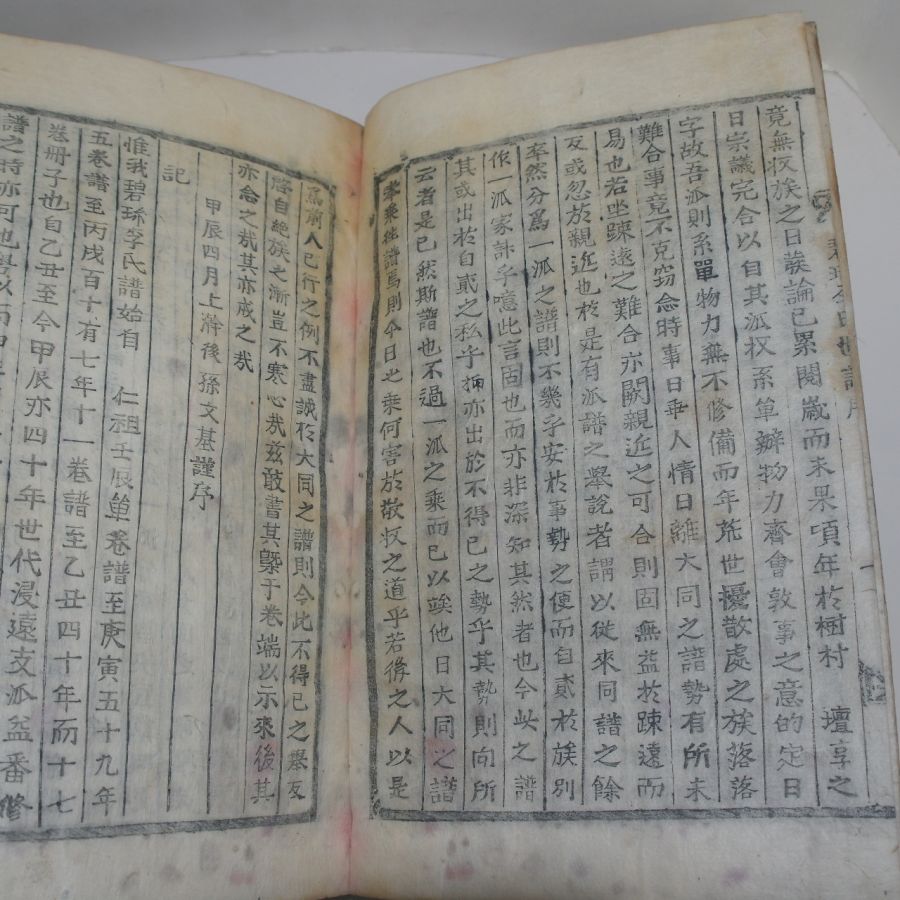 竟無収族之日議論已累閱嵗而未果頃年於樹村 壇享之
日宗議完合以自其派収系单辦物力齊會敦事之意的定日
字故吾派則系單物力無不修備而年荒世擾散處之族落落
難合事竟不克窃念時事日乖人情日離大同之譜勢有所未
易也若坐踈遠之難合亦闕親近之可合則固無益於踈遠而
反或忽於親近也於是有派譜之舉說者謂以從來同譜之餘
率然分爲一派之譜則不幾乎安於事勢之便而自貳於族別
作一派家計乎噫此言固也而亦非深知其然者也今此之譜
其或出於自貳之私乎抑亦出於不得已之勢乎其勢則向所
云者是已然斯譜也不過一派之乘而已以竢他日大同之譜
乘徃譜焉則今日之乘何害於敬収之道乎若後之人以是
爲前人已行之例不盡誠於大同之譜則今此不得已之擧反
啓自絶族之漸豈不寒心㢤兹敢書其槩于卷端以示來後其
亦念之㢤其亦戒之㢤
甲辰四月上澣後 孫文基謹序
記
惟我碧珎李氏譜始自 仁祖壬辰单卷譜至庚寅五十九年
五卷譜至丙戌百十有七年十一卷譜至乙丑四十年而十七
卷册子也自乙丑至今甲辰亦四十年世代浸遠支派益番修
譜之時亦可也